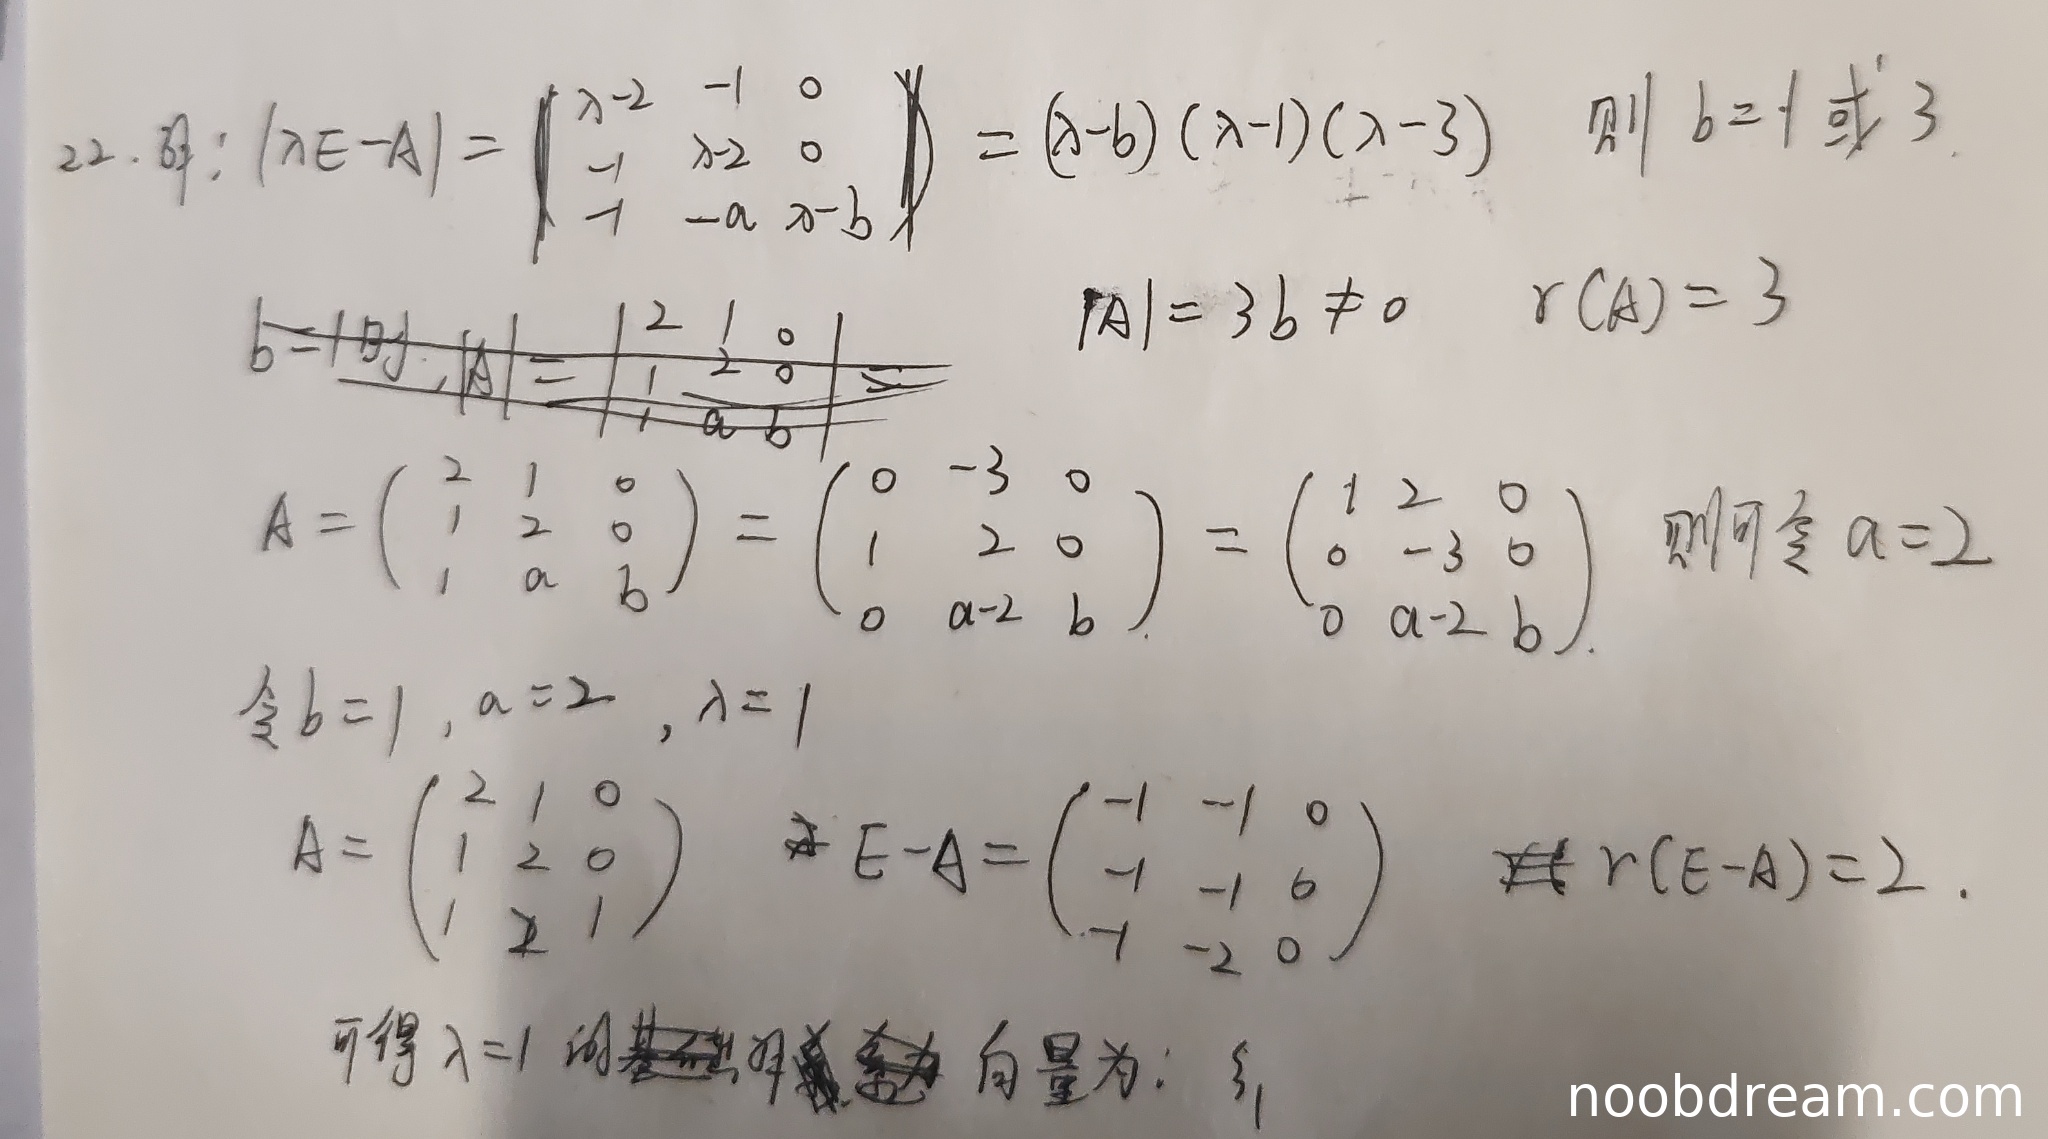 22. 解: |λE-A| = | λ-2 -1 0 ; -1 λ-2 0 ; -1 -a λ-b | = (λ-b)(λ-1)(λ-3) 则 b=1 或 3.
b=1时, |A| = | 2 1 0 ; 1 2 0 ; 1 a b | =
|A| = 3b ≠ 0 r(A) = 3
A = ( 2 1 0 ; 1 2 0 ; 1 a b ) = ( 0 -3 0 ; 1 2 0 ; 0 a-2 b ) = ( 1 2 0 ; 0 -3 0 ; 0 a-2 b ). 则可令 a=2
令 b=1, a=2, λ=1
A = ( 2 1 0 ; 1 2 0 ; 1 2 1 ) E-A = ( -1 -1 0 ; -1 -1 0 ; -1 -2 0 ) r(E-A)=2.
可得 λ=1 的解向量为: ξ₁
noobdream.com